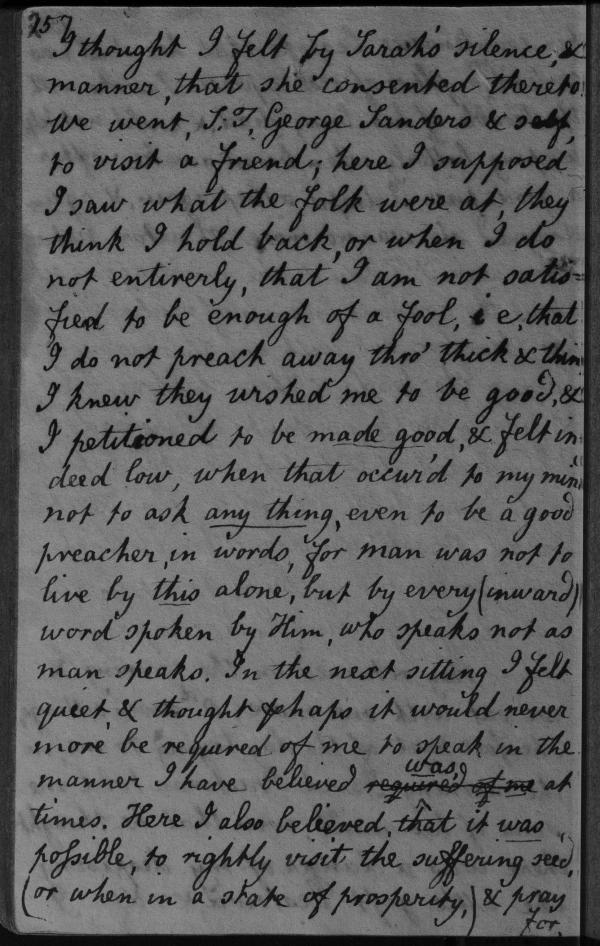 257
I thought I felt by Sarah's silence, &
manner, that she consented thereto.
We went, S. T, George Sanders & self,
to visit a friend; here I supposed
I saw what the folk were at, they
think I hold back, or when I do
not entirerly, that I am not satis=
fied to be enough of a fool, i e, that
I do not preach away thro' thick & thin
I knew they wished me to be good, &
I petitioned to be made good, & felt in=
deed low, when that occur'd to my mind
not to ask any thing, even to be a good
preacher, in words, for man was not to
live by this alone, but by every (inward)
word spoken by Him, who speaks not as
man speaks. In the next sitting I felt
quiet, & thought phaps it would never
more be required of me to speak in the
manner I have believed required of me was, at
times. Here I also believed, that it was
possible, to rightly visit the suffering seed,
(or when in a state of prosperity,) & pray
for,